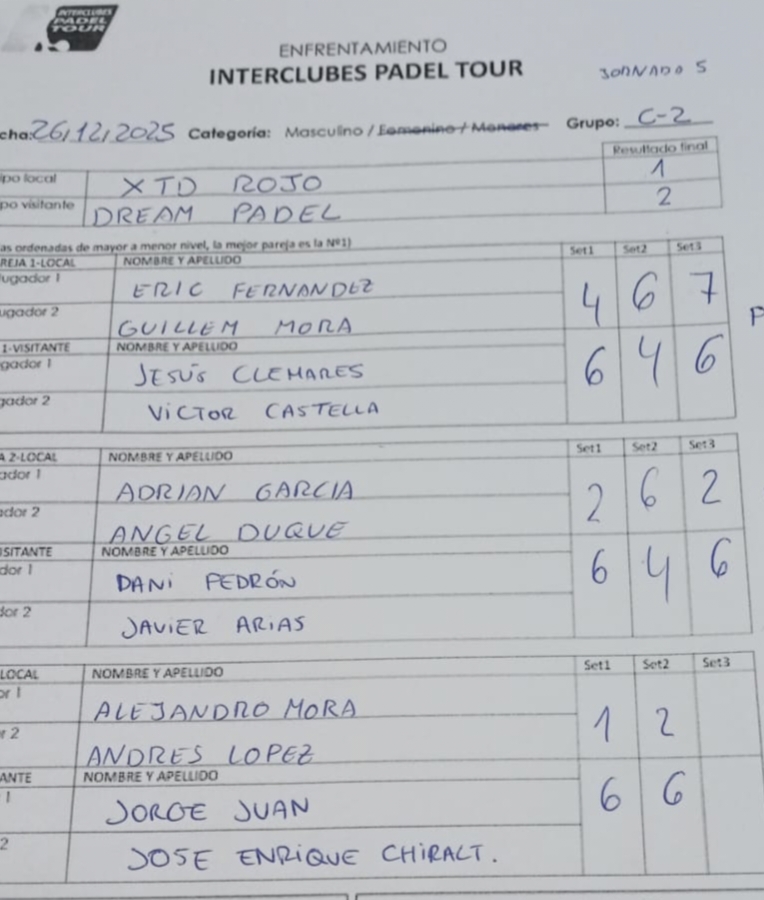 INTERCLUBES
PADEL
TOUR
ENFRENTAMIENTO
INTERCLUBES PADEL TOUR
JORNADA 5
cha: 26/12/2025 Categoría: Masculino / Femenino / Menores Grupo: C-2
Resultado final
ipo local XTD ROJO 1
po visitante DREAM PADEL 2
as ordenadas de mayor a menor nivel, la mejor pareja es la Nº1)
Set1 Set2 Set3
REJA 1-LOCAL NOMBRE Y APELLIDO
ugador 1 ERIC FERNANDEZ
4 6 7
ugador 2 GUILLEM MORA
P
1-VISITANTE NOMBRE Y APELLIDO
gador 1 JESÚS CLEMARES
6 4 6
gador 2 VICTOR CASTELLA
Set1 Set2 Set3
A 2-LOCAL NOMBRE Y APELLIDO
ador 1 ADRIAN GARCIA
2 6 2
ador 2 ANGEL DUQUE
ISITANTE NOMBRE Y APELLIDO
dor 1 DANI PEDRÓN
6 4 6
dor 2 JAVIER ARIAS
Set1 Set2 Set3
LOCAL NOMBRE Y APELLIDO
or 1 ALEJANDRO MORA
1 2
r 2 ANDRES LOPEZ
ANTE NOMBRE Y APELLIDO
1 JORGE JUAN
6 6
2 JOSE ENRIQUE CHIRALT.